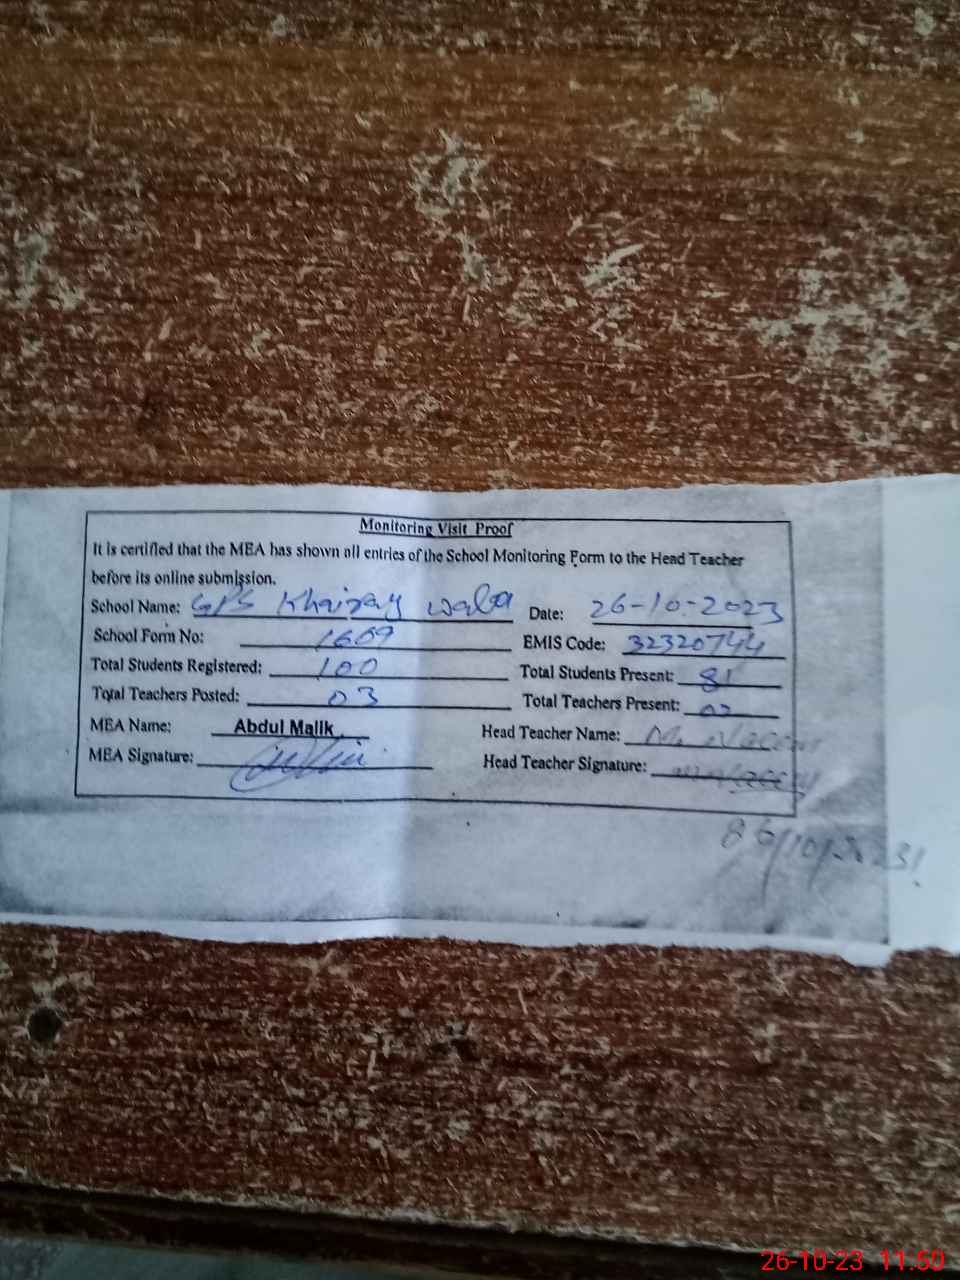 Monitoring Visit Proof
It is certified that the MEA has shown all entries of the School Monitoring Form to the Head Teacher
before its online submission.
School Name: GPS Khairay wala Date: 26-10-2023
School Form No: 1609 EMIS Code: 32320744
Total Students Registered: 100 Total Students Present: 81
Total Teachers Posted: 03 Total Teachers Present:
MEA Name: Abdul Malik Head Teacher Name: M. Naeem
MEA Signature: Head Teacher Signature:
26/10/2023
26-10-23 11:50